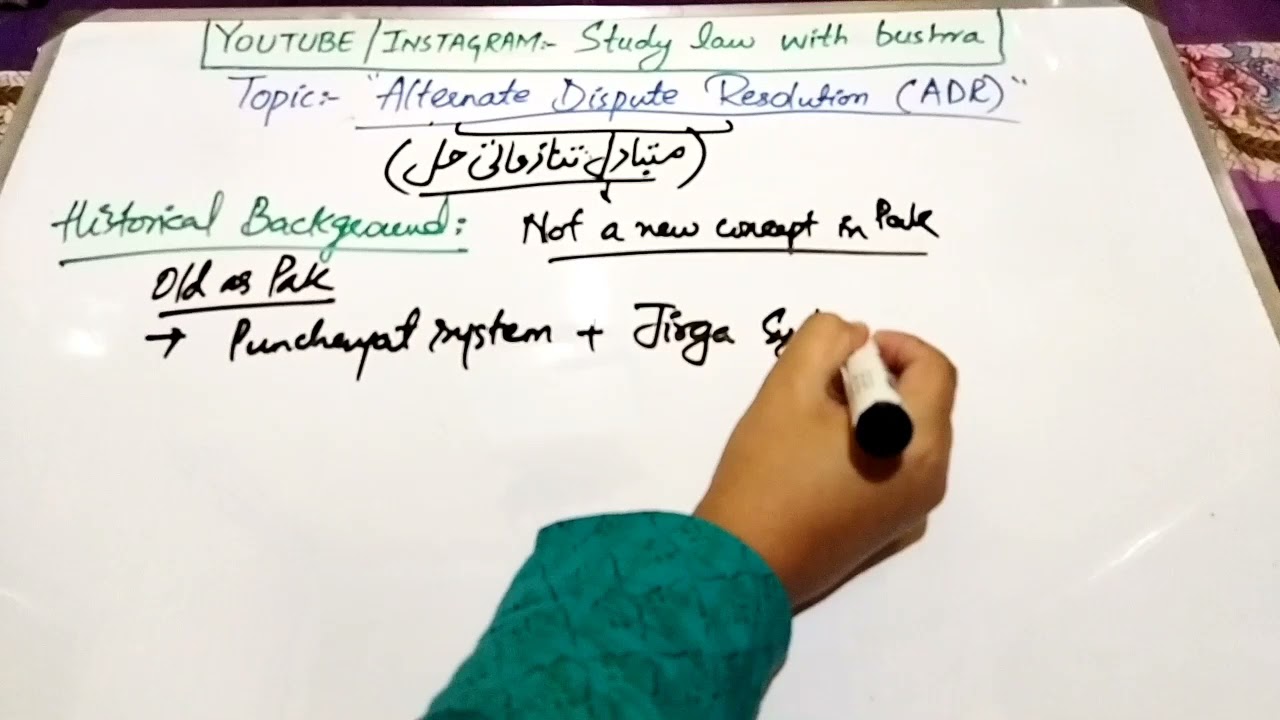 YOUTUBE/INSTAGRAM:- Study law with bushra
Topic:- "Alternate Dispute Resolution (ADR)"
(متبادل تنازعاتی حل)
Historical Background: Not a new concept in Pak
Old as Pak
→ Punchayat system + Jirga Sy